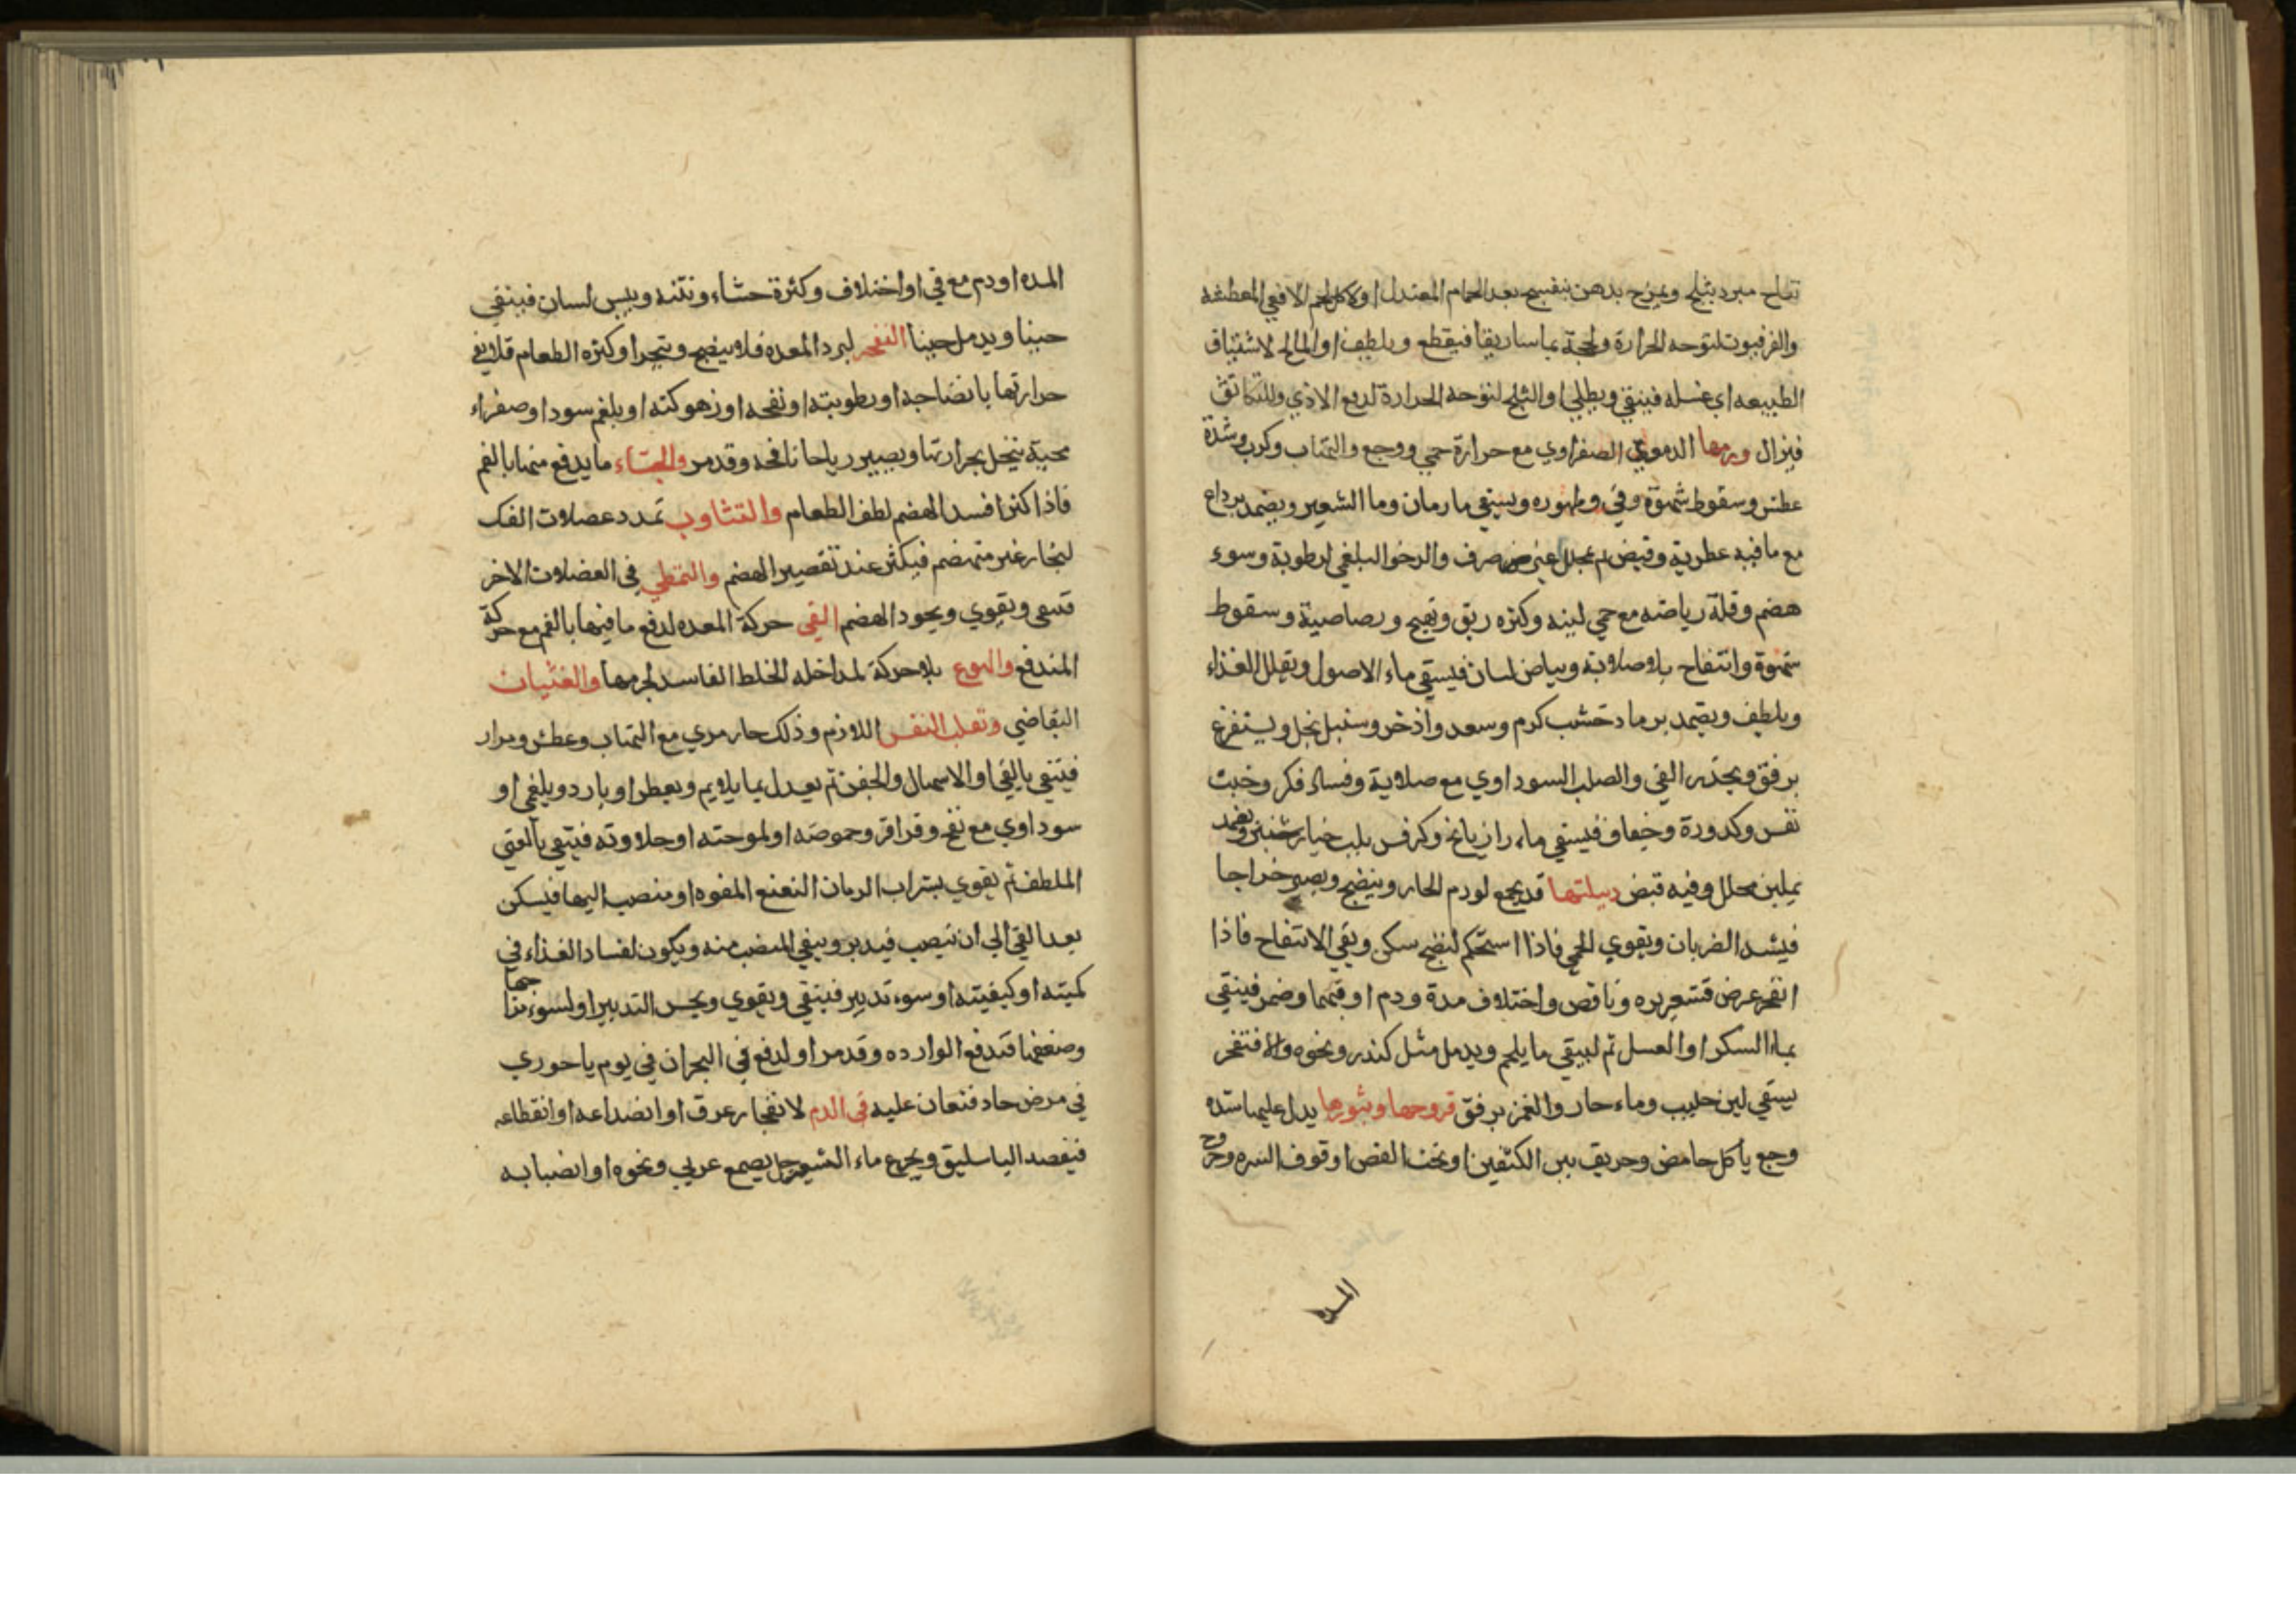 تفاح مبرد بثلج ويمزج بدهن بنفسج بعد الحمام المعتدل اولاكل لحم الافعي المعطشه
والفرفيون لتوحه الحرارة ولحجة بماساريقا فيقطع ويلطف اوالمالح لاشتياق
الطبيعه اي غسله فينقي ويطلي اوالثلج لتوحه الحرارة لدفع الاذي وللتكاثف
فيزال ورمها الدموي الصفراوي مع حرارة حمي ووجع والتهاب وكرب وشدة
عطش وسقوط شهوة وقي وظهوره ويسقي ما رمان وما الشعير ويضمد برداع
مع ما فيه عطرية وقبض ثم بمحلل غير صرف والرخو البلغمي لرطوبة وسوء
هضم وقلة رياضه مع حمي لينه وكثره ريق وتهيج ورصاصية وسقوط
شهوة وانتفاخ بلا صلابة وبياض لسان فيسقي ماء الاصول ويقلل الغذاء
ويلطف ويضمد برماد خشب كرم وسعد واذخر وسنبل بخل ويستفرغ
برفق ويحذر القي والصلب السوداوي مع صلابة وفساد فكر وخبث
نفس وكدورة وجفاف فيسقي ماء رازيانج وكرفس بلب خيارشنبر ويضمد
بملين محلل وفيه قبض دبيلتها قد يجمع لورم الحار وينضج ويصير خراجا
فيشد الضربان ويقوي الحمي فاذا استحكم لنضج سكن وبقي الانتفاح فاذا
انفجر عرض قشعريره ونافض واختلاف مدة ودم او قيهما وضمر فينقي
بماء السكر او العسل ثم ليسقي ما يلحم ويدمل مثل كندر ونحوه والا فتفجر
يسقي لبن حليب وماء حار والغمز برفق قروحها وبثورها يدل عليها شده
وجع باكل حامض وحريف بين الكتفين او تحت القص او فوق السره وخروج
المده
المده او دم مع قي او اختلاف وكثرة جشاء ونتنه ويبس لسان فينقي
حينا ويدمل حينا النفخ لبرد المعده فلا ينضج ويتبخر او كثره الطعام فلا يفي
حرارتها بانضاجه او رطوبته او نفخه او زهوكته او بلغم سودا وصفراء
محية يتخل بحرارتها ويصير رياحا نافخه وقد مر والجشاء ما يدفع منها بالفم
فاذا كثر افسد الهضم لطف الطعام والتثاوب تمدد عضلات الفك
لبخار غير منهضم فيكثر عند تقصير الهضم والتمطي في العضلات الاخر
فتنقي ويقوي ويجود الهضم القي حركة المعده لدفع ما فيها بالفم مع حركة
المندفع والهوع بلا حركة لمداخله الخلط الفاسد لجرمها والغثيان
التقاضي وتقلب النفس اللازم وذلك حار مري مع التهاب وعطش ومرار
فينقي بالقي او الاسهال والحقن ثم يعدل بما يلايم ويعطر او بارد وبلغمي او
سوداوي مع نفخ وقراقر وحموضه او لموحته او حلاوته فينقي بالقي
الملطف ثم يقوي بشراب الرمان النعنع المفوه او منصب اليها فيسكن
بعد القي الي ان ينصب فيدبر وينقي المنصب منه ويكون لفساد الغذاء في
كميته او كيفيته او سوء تدبير فينقي ويقوي ويحسن التدبير او لسوء مزاجها
وضعفها فتدفع الوارده وقد مر او لدفع في البحران في يوم باحوري
في مرض حاد فتعان عليه قي الدم لانفجار عرق او انصداعه او انقطاعه
فيفصد الباسليق ويجرع ماء الشعير بصمع عربي ونحوه او انصبابه